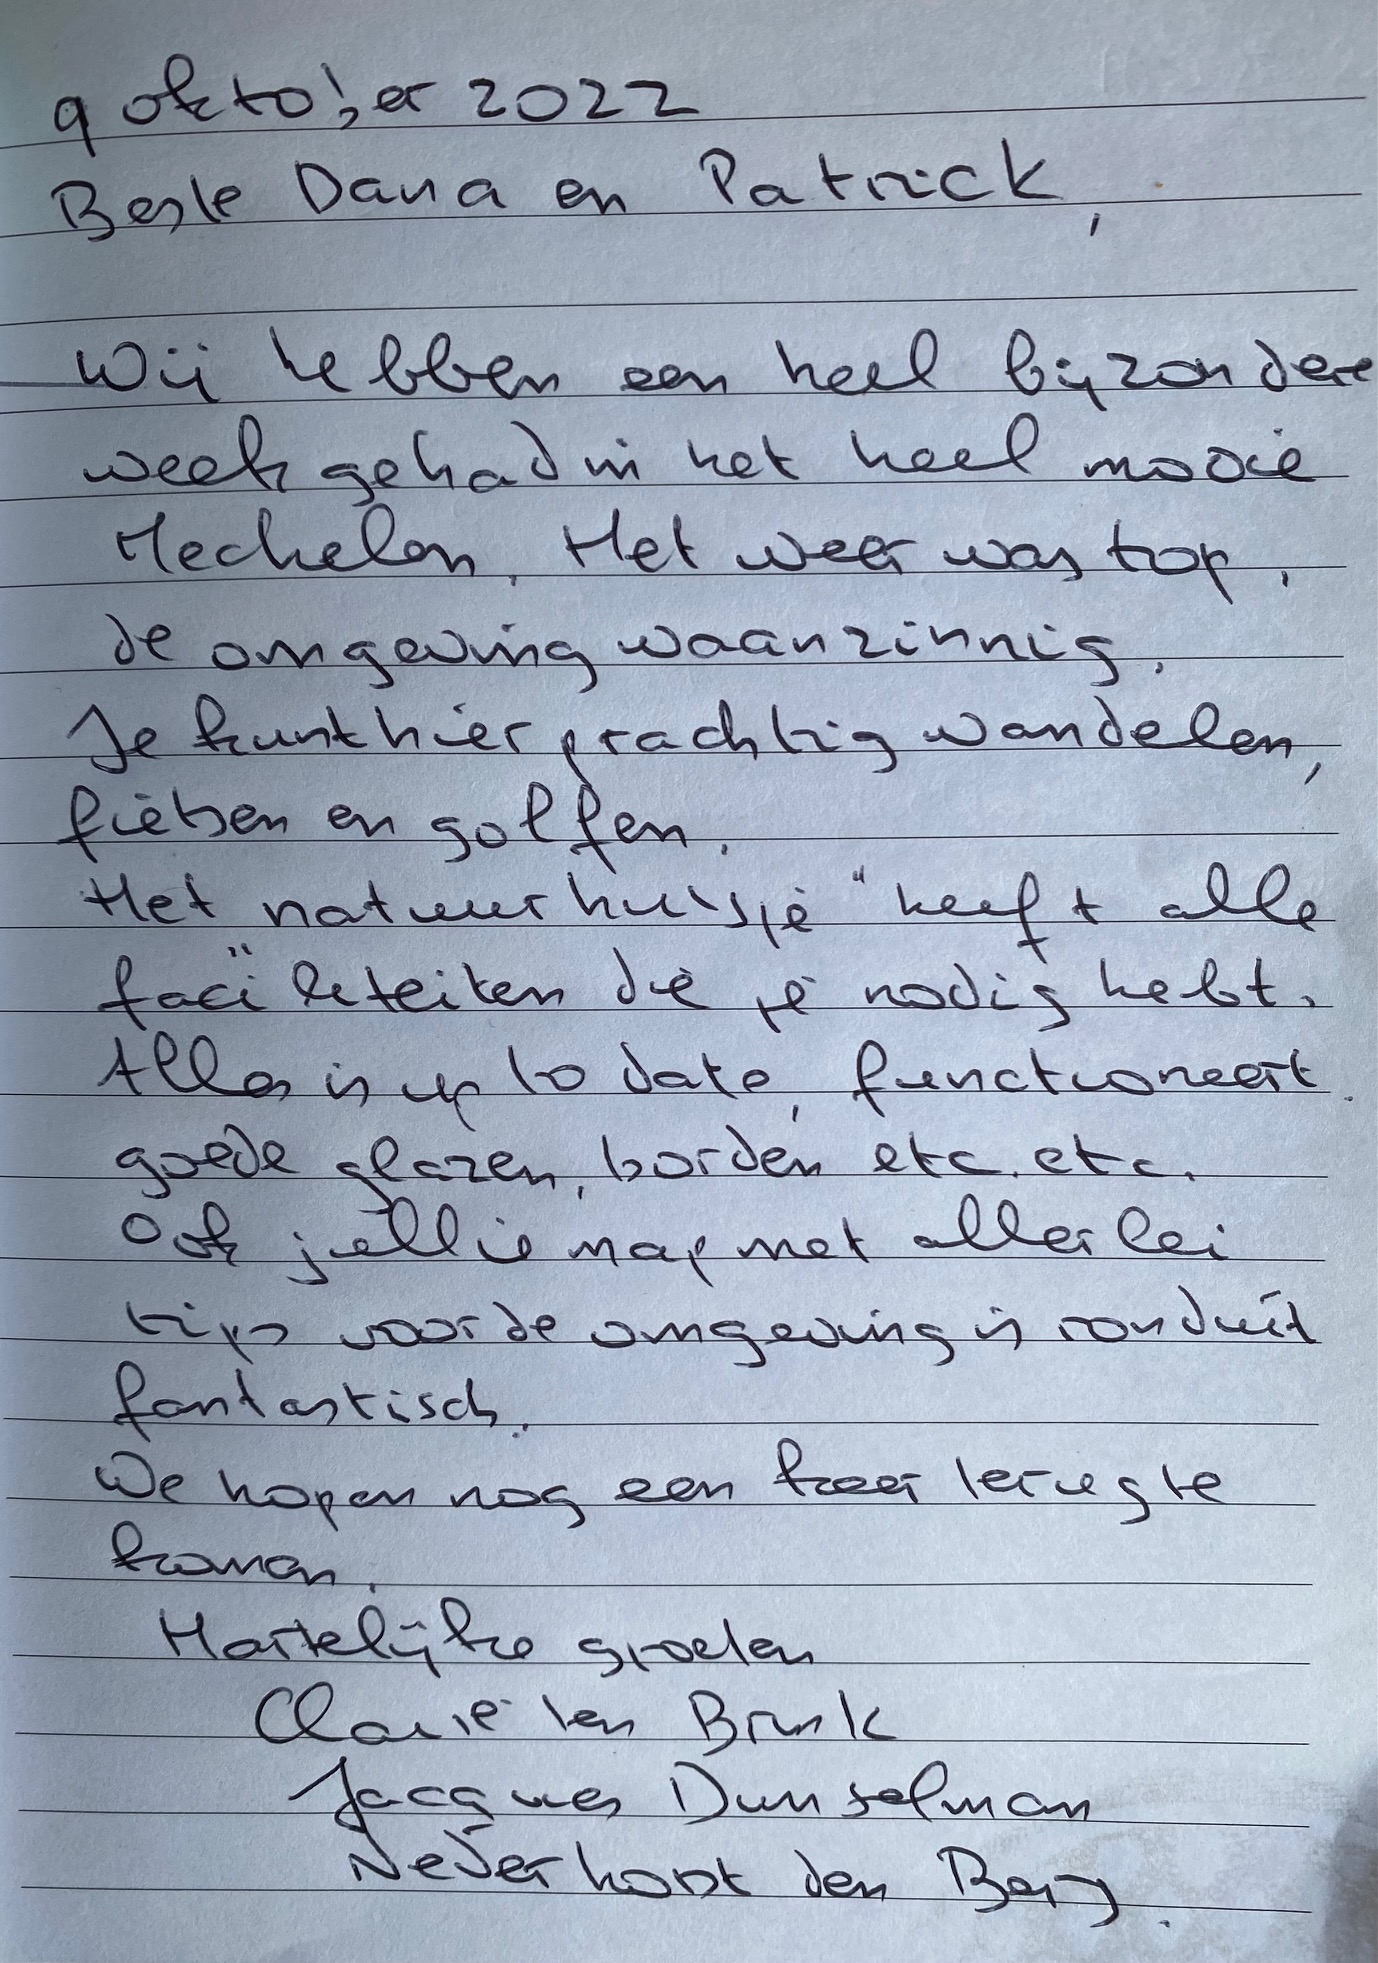 9 oktober 2022
Beste Dana en Patrick,
Wij hebben een heel bijzondere
week gehad in het heel mooie
Mechelen. Het weer was top,
de omgeving waanzinnig.
Je kunt hier prachtig wandelen,
fietsen en golfen.
Het natuurhuisje" heeft alle
faciliteiten die je nodig hebt.
Alles is up to date, functioneert.
goede glazen, borden etc. etc.
Ook jullie map met allerlei
tips voor de omgeving is ronduit
fantastisch.
We hopen nog een keer terug te
komen.
Hartelijke groeten
ten Brink
Jacques Dunselman
Nederhorst den Berg.